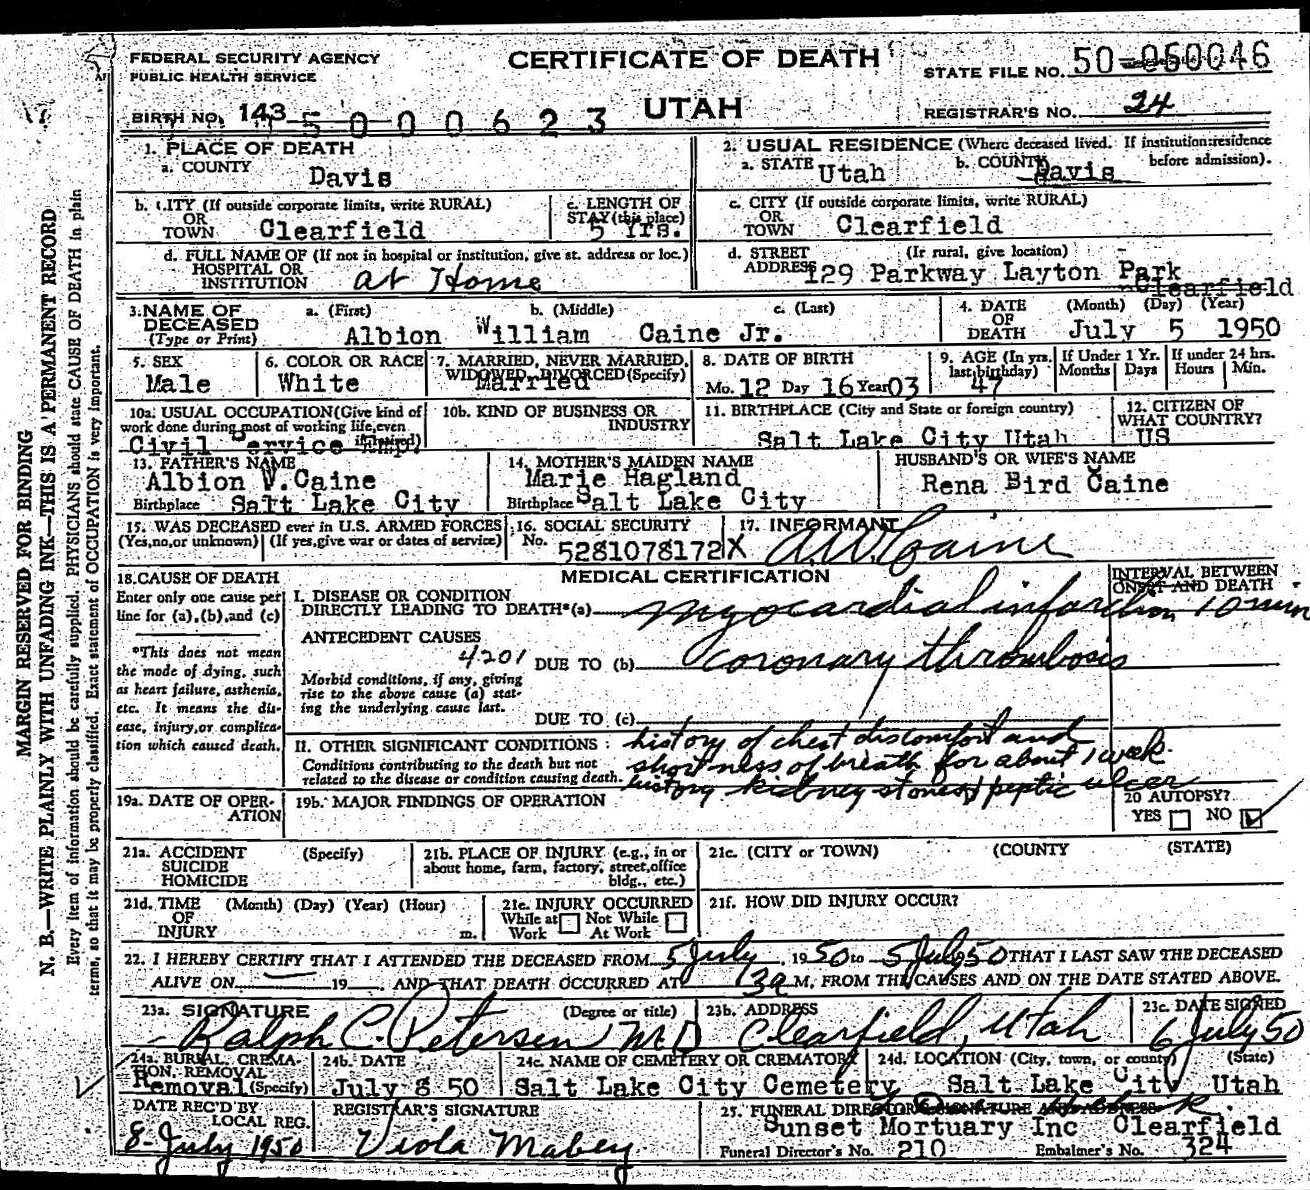 FEDERAL SECURITY AGENCY
PUBLIC HEALTH SERVICE
CERTIFICATE OF DEATH
STATE FILE NO. 50-060046
BIRTH NO. 143 5 0 0 0 6 2 3
UTAH
REGISTRAR'S NO. 24
1. PLACE OF DEATH
a. COUNTY Davis
2. USUAL RESIDENCE (Where deceased lived. If institution:residence before admission).
a. STATE Utah b. COUNTY Davis
b. CITY (If outside corporate limits, write RURAL)
OR TOWN Clearfield
c. LENGTH OF STAY (this place) 5 Yrs.
c. CITY (If outside corporate limits, write RURAL)
OR TOWN Clearfield
d. FULL NAME OF (If not in hospital or institution, give st. address or loc.)
HOSPITAL OR INSTITUTION at Home
d. STREET ADDRESS (If rural, give location)
129 Parkway Layton Park
Clearfield
3. NAME OF DECEASED (Type or Print)
a. (First) b. (Middle) c. (Last)
Albion William Caine Jr.
4. DATE OF DEATH (Month) (Day) (Year)
July 5 1950
5. SEX
Male
6. COLOR OR RACE
White
7. MARRIED, NEVER MARRIED, WIDOWED, DIVORCED (Specify)
Married
8. DATE OF BIRTH
Mo. 12 Day 16 Year 03
9. AGE (In yrs. last birthday)
47
If Under 1 Yr. Months Days
If under 24 hrs. Hours Min.
10a. USUAL OCCUPATION (Give kind of work done during most of working life, even if retired)
Civil Service Emp.
10b. KIND OF BUSINESS OR INDUSTRY
11. BIRTHPLACE (City and State or foreign country)
Salt Lake City Utah
12. CITIZEN OF WHAT COUNTRY?
US
13. FATHER'S NAME
Albion W. Caine
Birthplace Salt Lake City
14. MOTHER'S MAIDEN NAME
Marie Hagland
Birthplace Salt Lake City
HUSBAND'S OR WIFE'S NAME
Rena Bird Caine
15. WAS DECEASED ever in U.S. ARMED FORCES
(Yes, no, or unknown) (If yes, give war or dates of service)
16. SOCIAL SECURITY
No. 5281078172
17. INFORMANT
X A.W. Caine
18. CAUSE OF DEATH
Enter only one cause per line for (a), (b), and (c)
*This does not mean the mode of dying, such as heart failure, asthenia, etc. It means the disease, injury, or complication which caused death.
MEDICAL CERTIFICATION
INTERVAL BETWEEN ONSET AND DEATH
I. DISEASE OR CONDITION
DIRECTLY LEADING TO DEATH*(a) myocardial infarction 10 min
ANTECEDENT CAUSES
4201
DUE TO (b) coronary thrombosis
Morbid conditions, if any, giving rise to the above cause (a) stating the underlying cause last.
DUE TO (c)
II. OTHER SIGNIFICANT CONDITIONS:
Conditions contributing to the death but not related to the disease or condition causing death.
history of chest discomfort and
shortness of breath for about 1 week.
history kidney stones, peptic ulcer
19a. DATE OF OPERATION
19b. MAJOR FINDINGS OF OPERATION
20 AUTOPSY?
YES NO
21a. ACCIDENT (Specify)
SUICIDE
HOMICIDE
21b. PLACE OF INJURY (e.g., in or about home, farm, factory, street, office bldg., etc.)
21c. (CITY or TOWN) (COUNTY) (STATE)
21d. TIME OF INJURY (Month) (Day) (Year) (Hour) m.
21e. INJURY OCCURRED
While at Work Not While At Work
21f. HOW DID INJURY OCCUR?
22. I HEREBY CERTIFY THAT I ATTENDED THE DECEASED FROM 5 July, 1950 to 5 July 50 THAT I LAST SAW THE DECEASED
ALIVE ON 19 , AND THAT DEATH OCCURRED AT 13a M, FROM THE CAUSES AND ON THE DATE STATED ABOVE.
23a. SIGNATURE (Degree or title)
Ralph C. Petersen MD
23b. ADDRESS
Clearfield, Utah
23c. DATE SIGNED
6 July 50
24a. BURIAL, CREMATION, REMOVAL (Specify)
Removal
24b. DATE
July 8 50
24c. NAME OF CEMETERY OR CREMATORY
Salt Lake City Cemetery
24d. LOCATION (City, town, or county) (State)
Salt Lake City Utah
DATE REC'D BY LOCAL REG.
8 July 1950
REGISTRAR'S SIGNATURE
Viola Mabey
25. FUNERAL DIRECTOR'S SIGNATURE AND ADDRESS
Sunset Mortuary Inc Clearfield
Funeral Director's No. 210 Embalmer's No. 324
MARGIN RESERVED FOR BINDING
N. B.—WRITE PLAINLY WITH UNFADING INK—THIS IS A PERMANENT RECORD
Every item of information should be carefully supplied. PHYSICIANS should state CAUSE OF DEATH in plain
terms, so that it may be properly classified. Exact statement of OCCUPATION is very important.